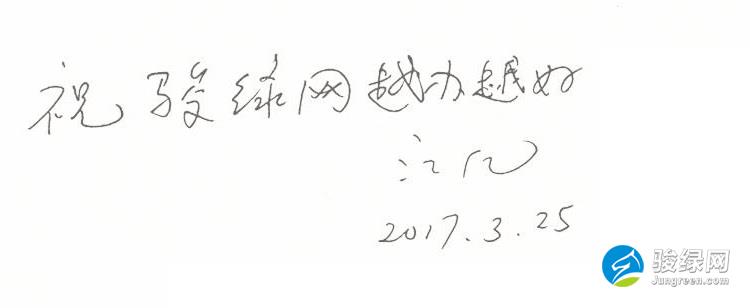 祝骏绿网越办越好
江亿
2017.3.25
骏绿网
Jungreen.com